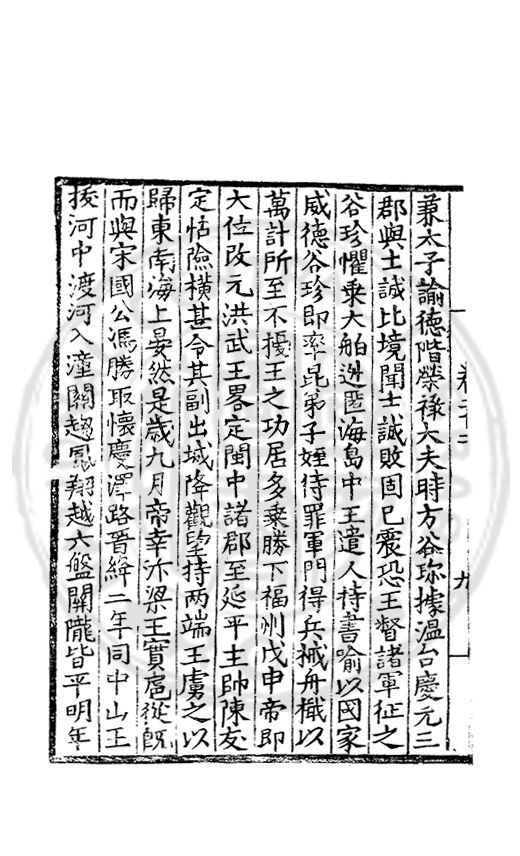 兼太子諭德階榮祿大夫時方谷珍據溫台慶元三
郡與士誠比境聞士誠敗固已震恐王督諸軍征之
谷珍懼乗大舶逃匿海島中王遣人持書喻以國家
威德谷珍即率昆弟子姪待罪軍門得兵械舟檝以
萬計所至不擾王之功居多乗勝下福州戊申帝即
大位改元洪武王畧定閩中諸郡至延平主帥陳友
定怙險橫甚令其副出城降觀望持两端王虜之以
歸東南海上晏然是歳九月帝幸汴梁王實扈從旣
而與宋國公馮勝取懷慶澤路晉絳二年同中山王
拔河中渡河入潼關趨鳳翔越六盤關隴皆平明年
九